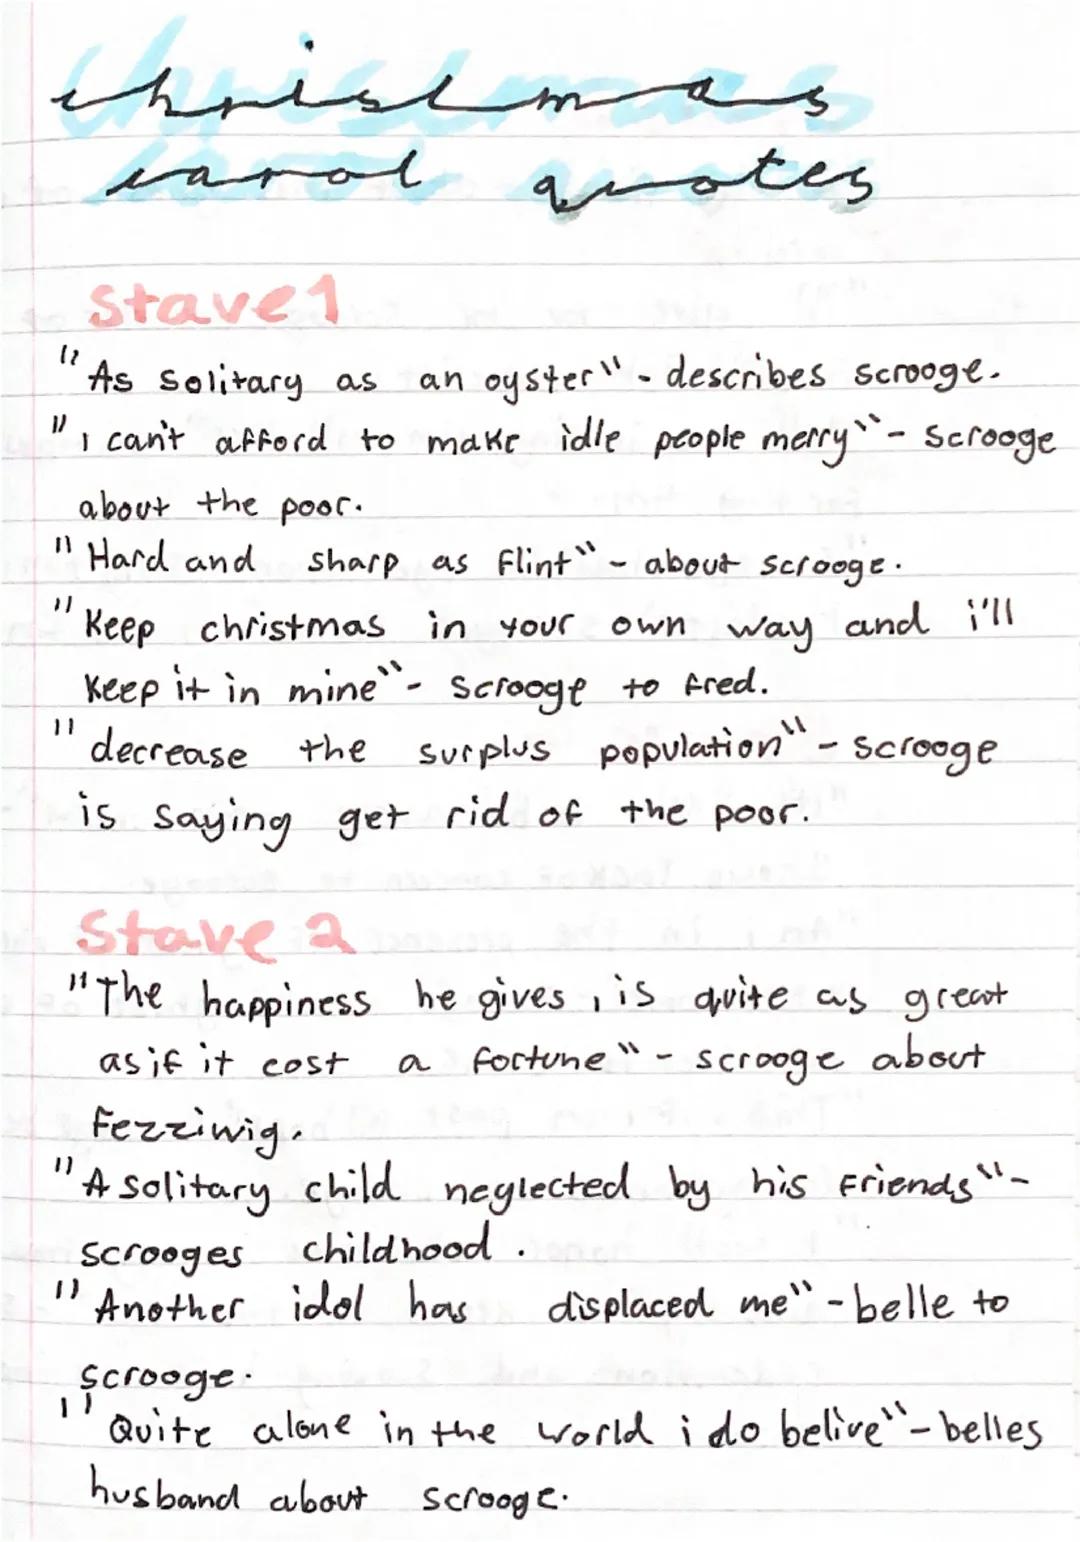 christmas
carol quotes
Stave 1
"As solitary as an oyster" - describes scrooge.
"I can't afford to make idle people merry" - Scrooge
about the poor.
"Hard and sharp as flint" - about scrooge.
"Keep christmas in your own way and i'll
keep it in mine" - Scrooge to fred.
"decrease the surplus population" - Scrooge
is saying get rid of the poor.
Stave 2
"The happiness he gives, is quite as great
as if it cost a fortune" - scrooge about
Fezziwig.
"A solitary child neglected by his friends" -
scrooges childhood.
"Another idol has displaced me" - belle to
scrooge.
"Quite alone in the world i do belive" - belles
husband about scrooge.